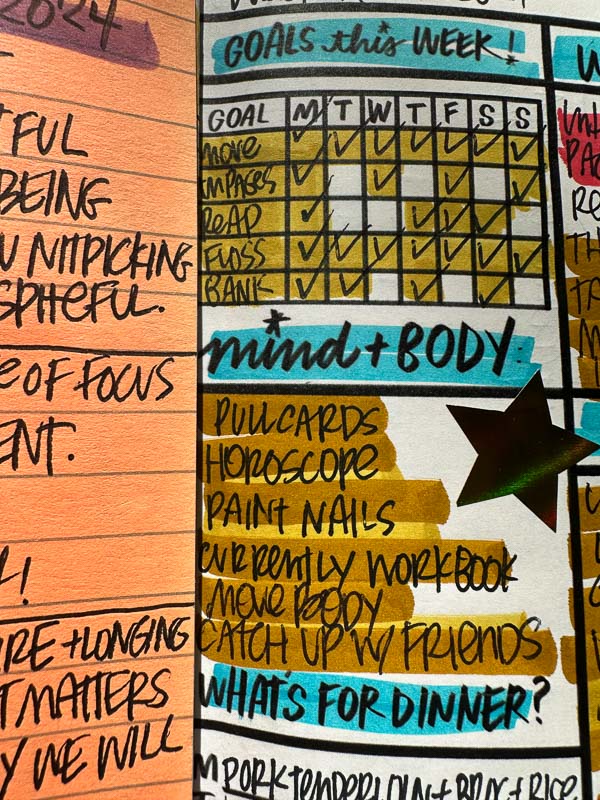 2024
TFUL
BEING
NITPICKING
SPITEFUL.
OF FOCUS
ENT.
!
IRE + LONGING
T MATTERS
Y WE WILL
GOALS this WEEK!
GOAL M T W T F S S
MOVE ✓ ✓ ✓ ✓ ✓ ✓ ✓
MPAGES ✓ ✓ ✓ ✓
READ ✓ ✓ ✓ ✓
FLOSS ✓ ✓ ✓ ✓ ✓ ✓ ✓
BANK ✓ ✓ ✓ ✓
mind + BODY:
PULL CARDS
HOROSCOPE
PAINT NAILS
CURRENTLY WORKBOOK
MOVE BODY
CATCH UP W/ FRIENDS
WHAT'S FOR DINNER?
M PORK TENDERLOIN + + RICE
W
PAC
RE
TH
TR
M